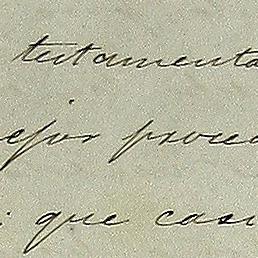 testamenta
ejor proced
que casi